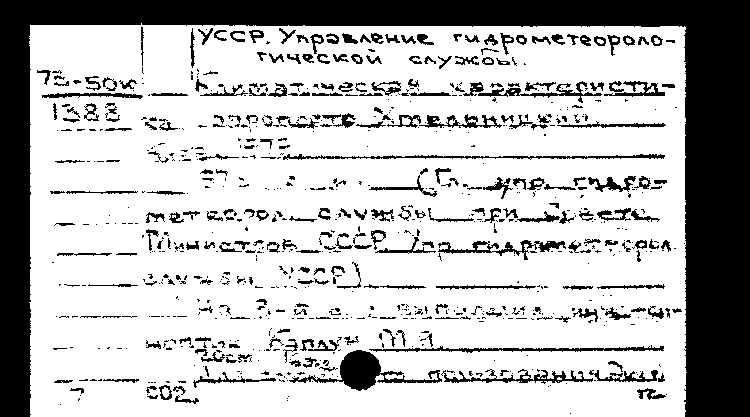 УССР. Управление гидрометероло-
гической службы.
73-50к Климатическая характеристи-
1388 ка аэропорта Хмельницкий.
Киев 1973
37с. (Гл. упр. гидро-
метеорол. службы при Совете
Министров СССР Упр гидрометеорол
службы УССР)
На 3-й с.: выполнена
Каплун М.Я.
20см
Для пользования
7 СО2